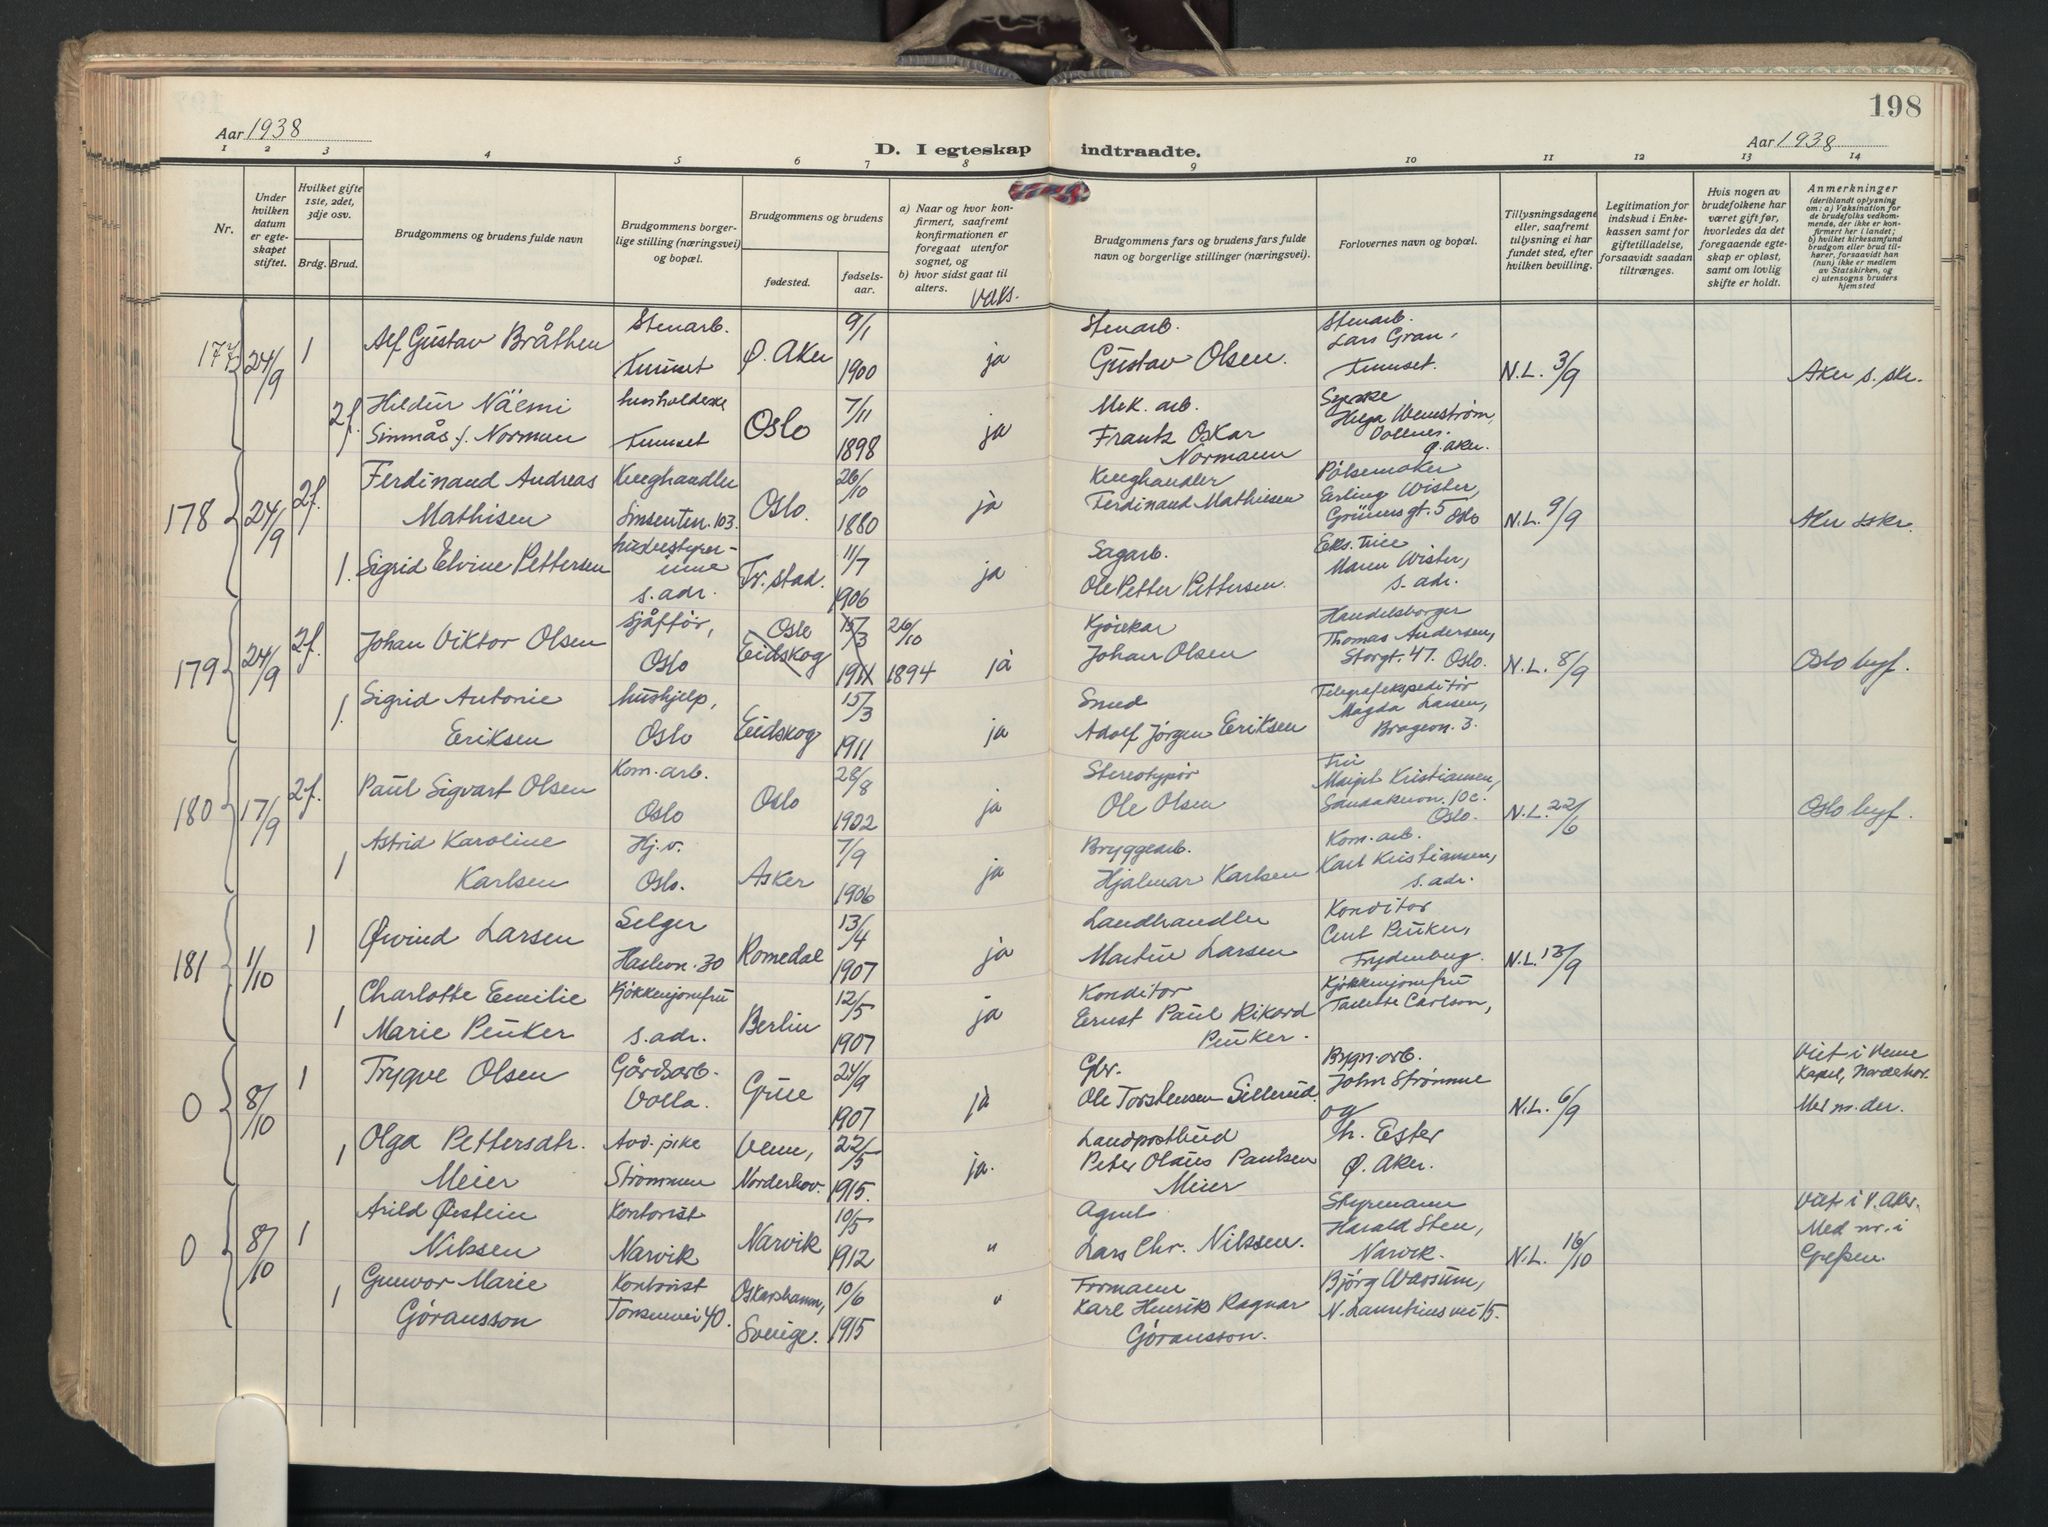 198
Aar 1938
D. I egteskap indtraadte.
Aar 1938
1 2 3 4 5 6 7 8 9 10 11 12 13 14
Nr.
Under hvilken datum er egteskapet stiftet.
Hvilket gifte 1ste, 2det, 3dje osv.
Brdg. Brud.
Brudgommens og brudens fulde navn
Brudgommens borgerlige stilling (næringsvei) og bopæl.
Brudgommens og brudens
fødested.
fødselsaar.
a) Naar og hvor konfirmert, saafremt konfirmationen er foregaat utenfor sognet, og
b) hvor sidst gaat til alters.
Vaks.
Brudgommens fars og brudens fars fulde navn og borgerlige stillinger (næringsvei).
Forlovernes navn og bopæl.
Tillysningsdagene eller, saafremt tillysning ei har fundet sted, efter hvilken bevilling.
Legitimation for indskud i Enkekassen samt for giftetilladelse, forsaavidt saadan tiltrænges.
Hvis nogen av brudefolkene har været gift før, hvorledes da det foregaaende egteskap er opløst, samt om lovlig skifte er holdt.
Anmerkninger
(deriblandt oplysning om: a) Vaksination for de brudefolks vedkommende, der ikke er konfirmert her i landet; b) hvilket kirkesamfund brudgom eller brud tilhører, forsaavidt han (hun) ikke er medlem av Statskirken, og c) utensogns bruders hjemsted
177 24/9 1 Alf Gustav Bråthen Stenarb. Ø. Aker 9/1 1900 ja Stenarb. Gustav Olsen. Stenarb. Lars Gran, N.L. 3/9 Aker s. skr.
2f. Hildur Näemi Sinmås f. Norman Oslo 7/11 1898 ja Mek. arb. Frantz Oskar Normann Helga Wennström, Ø. Aker.
178 24/9 2f. Ferdinand Andreas Mathisen Kullhandler Sinsenten. 103. Oslo. 26/10 1880 ja Ferdinand Mathiesen Pølsemaker Erling Wister, Grünersgt. 5 Oslo N.L. 9/9 Aker sskr.
1. Sigrid Elvine Pettersen s. adr. Fr.stad. 11/7 1906 ja Sagarb. Ole Petter Pettersen. Maren Wister, s. adr.
179 24/9 2f. Johan Viktor Olsen Sjåffør, Oslo Oslo Eidskog 15/3 1911 26/10 1894 ja Kjørekar Johan Olsen Handelsborger Thomas Andersen, Storgt. 47. Oslo. N.L. 8/9 Oslo byf.
1. Sigrid Antonie Eriksen hushjelp, Oslo Eidskog 15/3 1911 ja Smed Adolf Jørgen Eriksen Telegrafekspeditør Magda Larsen, Bragevn. 3.
180 17/9 2f. Paul Sigvart Olsen Kom. arb. Oslo Oslo 28/8 1902 ja Stereotypør Ole Olsen Fru Margit Kristiansen, Sandakervn. 10c. Oslo. N.L. 22/6 Oslo byf.
1 Astrid Karoline Karlsen Hj.v. Oslo. Asker 7/9 1906 ja Bryggearb. Hjalmar Karlsen Kom. arb. Karl Kristiansen, s. adr.
181 1/10 1 Øivind Larsen Selger Haslevn. 30 Romedal 13/4 1907 ja Landhandler Martin Larsen Konditor Curt Peuker, Frydenberg. N.L. 13/9
1 Charlotte Emilie Marie Peuker Kjøkkenjomfru s. adr. Berlin 12/5 1907 ja Konditor Ernst Paul Rikard Peuker. Kjøkkenjomfru Carlson,
0 8/10 1 Trygve Olsen Gårdsarb. Volla. Grue 24/9 1907 ja Gbr. Ole Torstensen Sillerud. Bygn. arb. John Strømme og N.L. 6/9 Viet i Veme Kapel, Norderhov. Med nr. der.
1 Olga Pettersdtr. Meier pike Strømmen Veme, Norderhov. 22/5 1915. ja. Landpostbud Peter Olaus Paulsen Meier h. Ester Ø. Aker.
0 8/10 1 Arild Øistein Nilssen Kontorist Narvik Narvik 10/5 1912 " Agent Lars Chr. Nilssen. Styrmann Harald Sten, Narvik. N.L. 16/10 Viet i V. Aker. Med nr. i Grefsen.
1 Gunvor Marie Göransson Kontorist Torsenvei 40. Oskarshamn, Sverige. 10/6 1915 " Formann Karl Henrik Ragnar Göransson. Bjørg Warsum, N. Lauritzius vei 15.